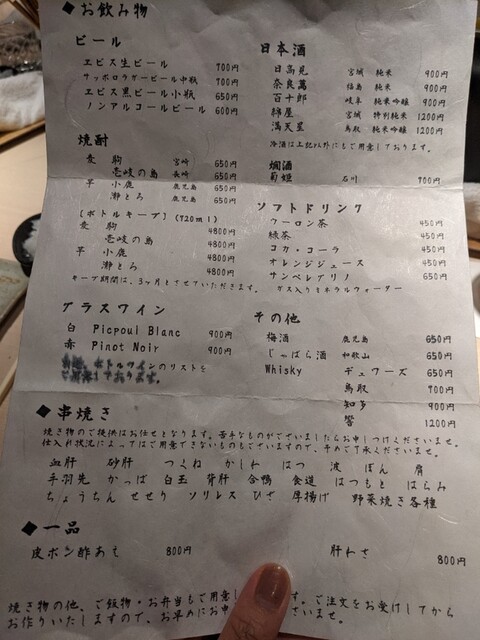 ◆お飲み物
ビール
エビス生ビール 700円
サッポロラガービール中瓶 700円
エビス黒ビール小瓶 650円
ノンアルコールビール 600円
焼酎
麦 駒 宮崎 650円
壱岐の島 長崎 650円
芋 小鹿 鹿児島 650円
瀞とろ 鹿児島 650円
[ボトルキープ](720ml)
麦 駒 4800円
壱岐の島 4800円
芋 小鹿 4800円
瀞とろ 4800円
キープ期間は、3ヶ月とさせていただきます。
グラスワイン
白 Picpoul Blanc 900円
赤 Pinot Noir 900円
ボトルワインのリストを
ご用意しております。
日本酒
日高見 宮城 純米 900円
奈良萬 福島 純米 900円
百十郎 岐阜 純米吟醸 900円
綿屋 宮城 特別純米 1200円
満天星 鳥取 純米吟醸 1200円
冷酒は上記以外にもご用意しております。
燗酒
菊姫 石川 700円
ソフトドリンク
ウーロン茶 450円
緑茶 450円
コカ・コーラ 450円
オレンジジュース 450円
サンペレグリノ 650円
ガス入りミネラルウォーター
その他
梅酒 鹿児島 650円
じゃばら酒 和歌山 650円
Whisky ギュフーズ 650円
鳥取 700円
知多 900円
響 1200円
◆串焼き
焼き物のご提供はお任せとなります。苦手なものがございましたらお申しつけくださいませ。
仕入れ状況によってはご用意できないものもございますので、予めご了承くださいませ。
血肝 砂肝 つくね かしわ はつ 波 ぼん 肩
手羽先 かっぱ 白玉 背肝 合鴨 食道 はつもと はらみ
ちょうちん せせり ソリレス ひざ 厚揚げ 野菜焼き各種
◆一品
皮ポン酢あえ 800円
肝わさ 800円
焼き物の他、ご飯物・お弁当もご用意し す。ご注文をお受けしてから
お作りいたしますので、お早めにお申 ございませ。